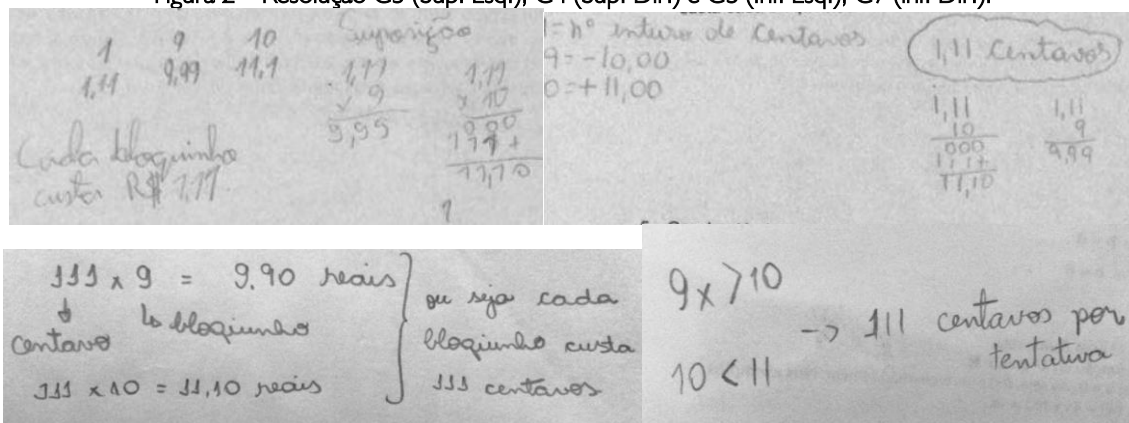 Figura 2 – Resolução G3 (Sup. Esq.), G4 (Sup. Dir.) e G5 (Inf. Esq.), G7 (Inf. Dir.).
1 9 10 Suposição
1,11 9,99 11,1 1,11 1,11
x 9 x 10
9,99 000
111+
11,10
Cada bloquinho
custa R$ 1,11.
1
1= nº inturo de centavos
9=-10,00
0=+11,00
1,11 centavos
1,11 1,11
10 9
000 9,99
111+
11,10
111 x 9 = 9.90 reais
centavo bloquinho
111 x 10 = 11,10 reais
ou seja cada
bloquinho custa
111 centavos
9x>10
10<11
-> 111 centavos por
tentativa